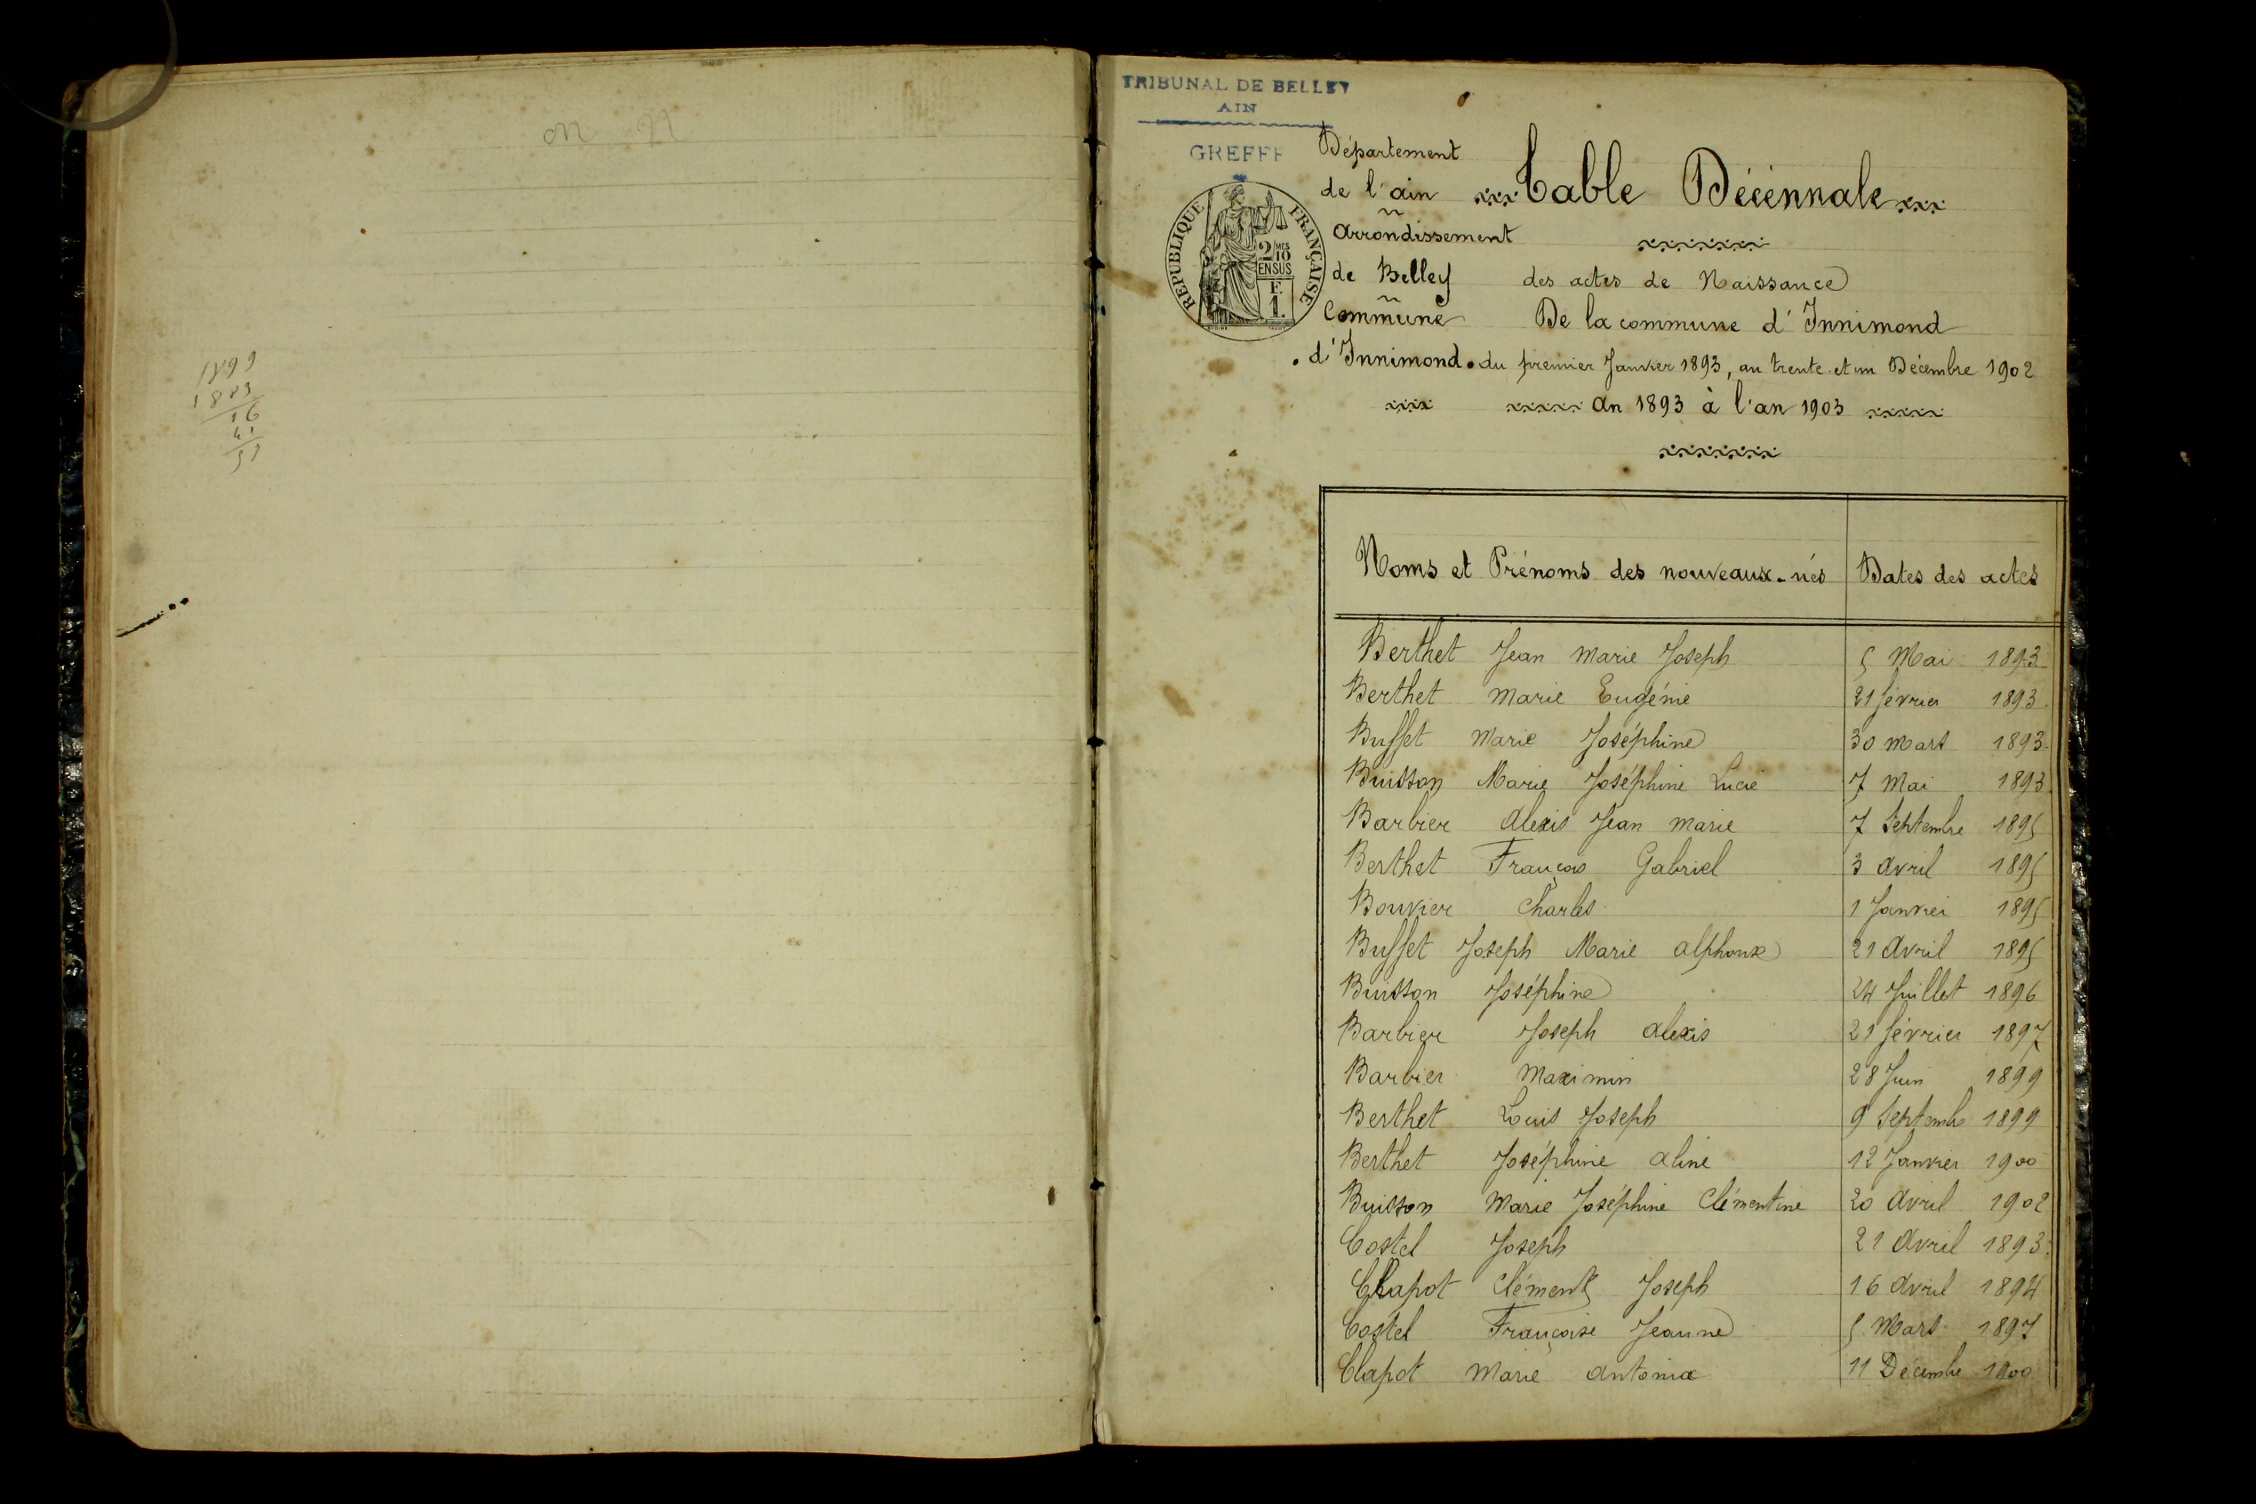 1899
1883
16
TRIBUNAL DE BELLEY
AIN
GREFFE
RÉPUBLIQUE FRANÇAISE
2 MES
10
EN SUS
F.
1.
Département
de l'ain
Arrondissement
de Belley
Commune
d'Innimond.
Table Décénnale
des actes de Naissance
De la commune d'Innimond
du premier Janvier 1893, au trente et un Décembre 1902
An 1893 à l'an 1903
Noms et Prénoms des nouveaux-nés Dates des actes
Berthet Jean Marie Joseph 5 Mai 1893
Berthet Marie Eugénie 21 février 1893
Buffet Marie Joséphine 30 Mars 1893
Buisson Marie Joséphine Lucie 7 Mai 1893
Barbier Alexis Jean Marie 7 Septembre 1895
Berthet François Gabriel 3 Avril 1895
Bouvier Charles 1 Janvier 1895
Buffet Joseph Marie Alphonse 21 Avril 1895
Buisson Joséphine 24 Juillet 1896
Barbier Joseph Alexis 21 février 1897
Barbier Maximin 28 Juin 1899
Berthet Louis Joseph 9 Septembre 1899
Berthet Joséphine Aline 12 Janvier 1900
Buisson Marie Joséphine Clémentine 20 Avril 1902
Costel Joseph 21 Avril 1893
Clapot Clément Joseph 16 Avril 1894
Costel Françoise Jeanne 5 Mars 1897
Clapot Marie Antonia 11 Décembre 1900